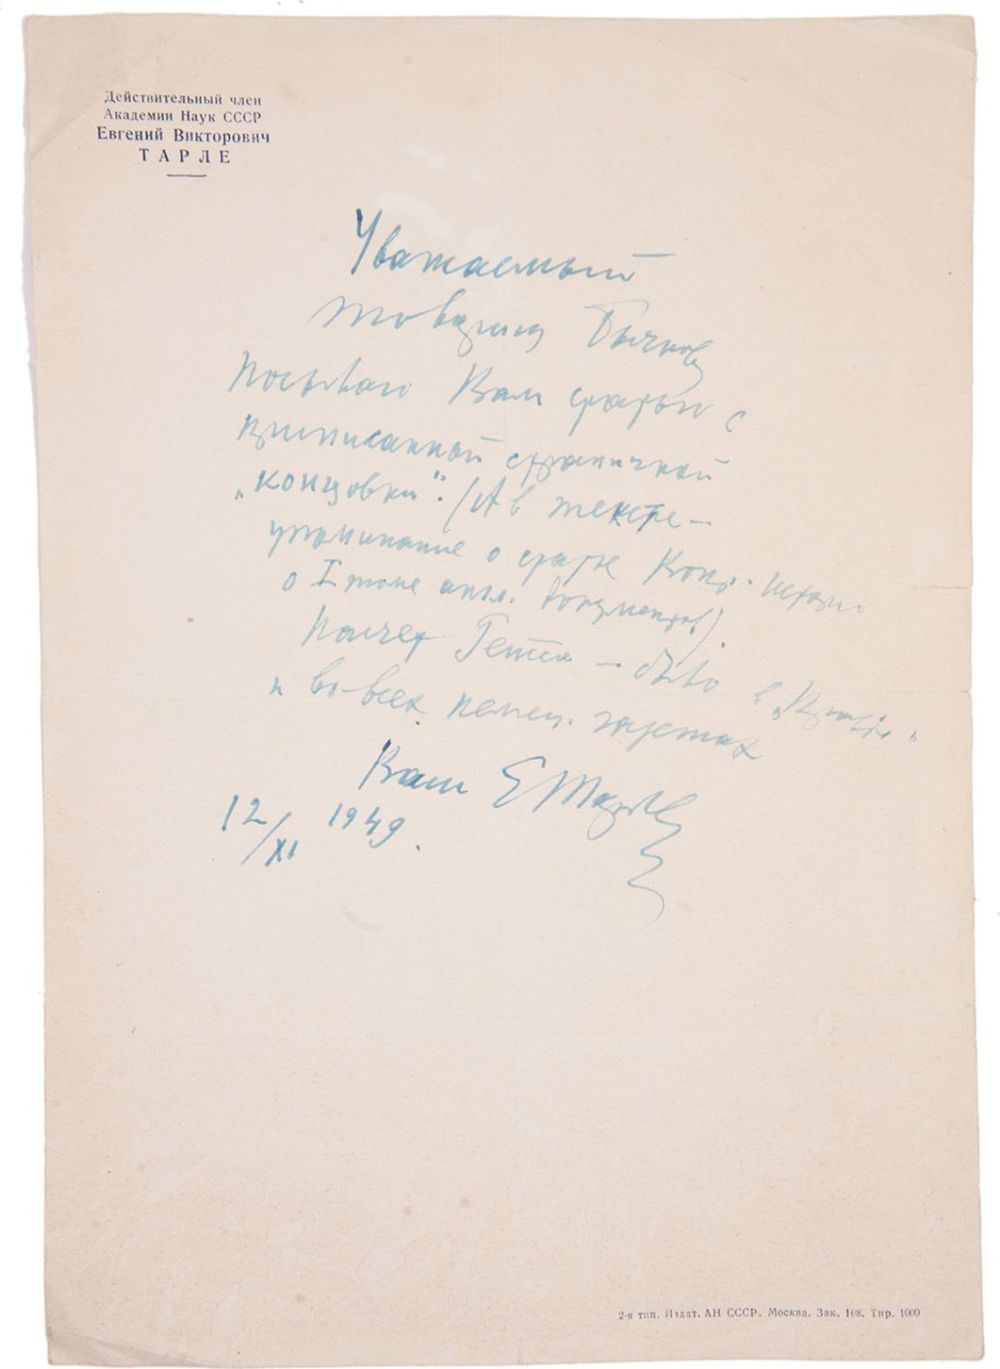 Действительный член
Академии Наук СССР
Евгений Викторович
ТАРЛЕ
Уважаемый
товарищ Бычков
Посылаю Вам статью с
приписанной страничкой
„концовки“. (А в тексте –
упоминание о статье Вопр. истории
о I томе англ. документов).
Почет Гетте – было в „Правде“
и во всех немец. газетах
Ваш Е Тарле
12/XI 1949.
2-я тип. Издат. АН СССР. Москва. Зак. 108. Тир. 1000